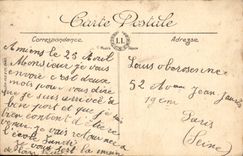 Carte Postale
Correspondance
Adresse
LL
Amiens le 25 Avril
Monsieur je vous
envoie ces deux
mots pour vous dire
que je suis arrivé à
bon port et que j'ai
bien content d'être
je vais retourner a
l'école lundi
je vous sert la main
Louis
52 Avenue Jean Jaurès
19 em
Paris
(Seine)